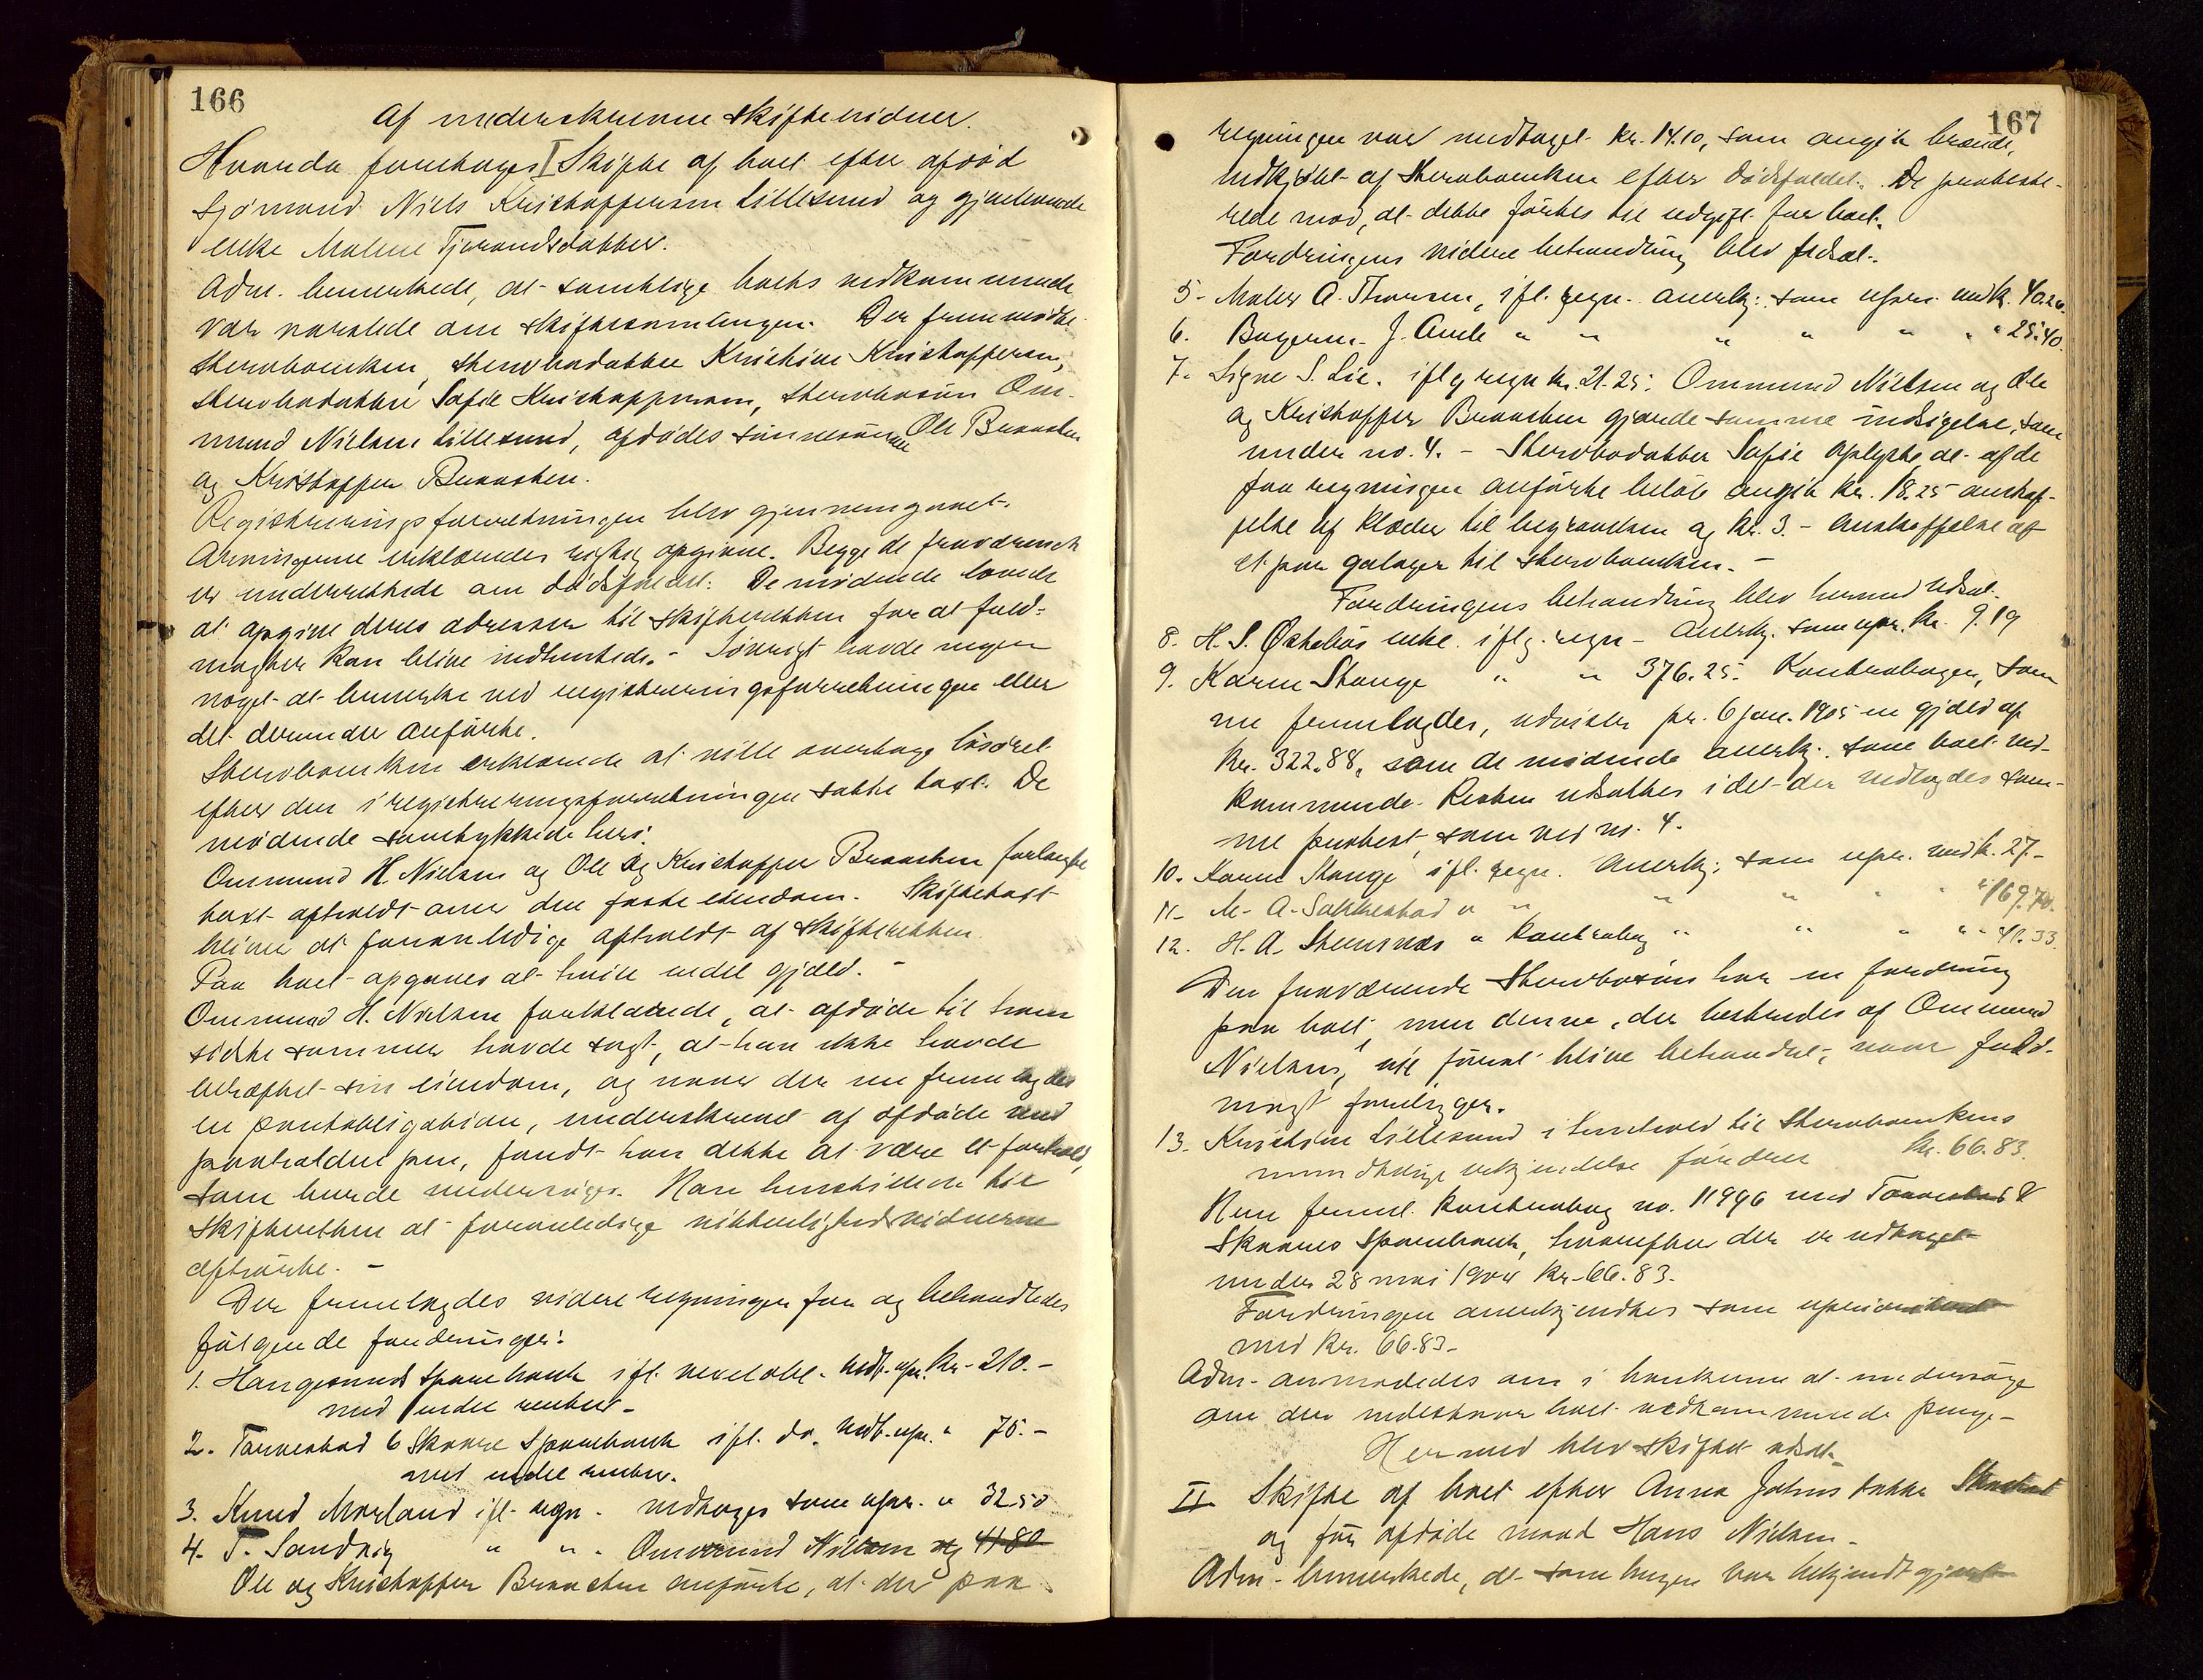 166
af underskrevne skiftevidner.
Hvorda foretoges I Skifte af boet efter afdød
Sjømand Niels Kristoffersen Lillesund og gjenlevende
enke Malene Tjerandsdatter.
Adm. bemerkede, at samtlige boets vedkommende
var varslede om skiftesamlingen. Der fremmødte
Stervboenken, stervbodatter Kristine Kristoffersen,
stervbodatter Sofie Kristoffersen, stervbosøn Om-
mund Nielsen Lillesund, afdødes sønnesønner Ole Braaten
og Kristoffer Braaten.
Registreringsforretningen blev gjennemgaaet.
Arvingerne erklæredes rigtig opgivne. Begge de fraværende
er underrettede om dødsfaldet. De mødende lovede
at opgive deres adresser til skifteretten for at fuld-
magter kan blive indhentede. - Iøvrigt havde ingen
noget at bemerke ved registreringsforretningen eller
det derunder anførte.
Stervboenken erklærede at ville overtage løsøret
efter den i registreringsforretningen satte taxt. De
mødende samtykkede heri.
Ommund H. Nielsen og Ole og Kristoffer Braaten forlangte
taxt afholdt over den faste eiendom. Skiftetaxt
bliver at foranledige afholdt af skifteretten.
Paa boet opgaves at hvile endel gjæld. -
Ommund H. Nielsen forklarede, at afdøde til ham
sidste sommer havde sagt, at han ikke havde
behæftet sin eiendom, og naar der nu fremlagdes
en pantobligation, underskrevet af afdøde med
paaholden pen, fandt han dette at være et forhold,
som burde undersøges. Han henstillede til
skifteretten at foranledige vitterlighedsvidnerne
afhørte. -
Der fremlagdes videre regninger for og behandledes
følgende fordringer:
1. Haugesunds Sparebank ifl. vexelobl. vedt. upr. Kr. 210.-
med endel renter.
2. Torvestad & Skaare Sparebank ifl. do. vedt. upr. " 75.-
med endel renter.
3. Knud Morland ifl. regn. vedtoges som upr. " 32.50
4. T. Sandvig " " . Ommund Nielsen og 41.80
Ole og Kristoffer Braaten anførte, at der paa
167
regningen var medtaget kr. 14.10, som angik brænde,
indkjøbt af Stervboenken efter dødsfaldet. De proteste-
rede mod, at dette førtes til udgift for boet.
Fordringens videre behandling blev udsat.
5. Maler A. Thorsen, ifl. regn. anerkj. som upri. med k. 40.20.
6. Bagerm. J. Amle " " " " " " " 25.40.
7. Signe S. Lie. iflg regn kr. 21.25. Ommund Nielsen og Ole
og Kristoffer Braaten gjorde samme indsigelse, som
under no. 4. - Stervbodatter Sofie oplyste at af de
paa regningen anførte beløb angik kr. 18.25 anskaf-
felse af klæder til begravelsen og kr. 3.- anskaffelse af
et par galoger til stervboenken. -
Fordringens behandling blev hermed udsat.
8. H. S. enke. iflg. regn - Anerkj. som upr. kr. 9.19
9. Karen Stange " " 376.25. Kontrabogen, som
nu fremlagdes, udviser pr. 6 jan. 1905 en gjæld af
kr. 322.88, som de mødende anerkj. som boet ved-
kommende. Resten udsattes idet der nedlagdes sam-
me protest som ved no. 4.
10. Karen Stange ifl. regn. Anerkj. som upr. med k. 27.-
11. M. A. Sakkestad " " " " " " " 169.70.
12. H. A. Stensnæs " kontrabog " " " " " 41.33.
Den fraværende Stervbosøn har en fordring
paa boet, men denne, der bestrides af Ommund
Nielsen, vil først blive behandlet, naar fuld-
magt foreligger.
13. Kristine Lillesund i henhold til Stervboenkens
mundtlige erkjendelse fordrer Kr. 66.83.
Hun freml. kontrabog no. 11996 med Torvestad &
Skaares Sparebank, hvorefter der er udtaget
under 28 mai 1904 kr. 66.83.
Fordringen anerkjendtes som uprioriteret
med kr. 66.83.
Adm. anmodedes om i bankerne at undersøge
om der indestaar boet vedkommende penge.
Hermed blev skiftet udsat.
II Skifte af boet efter Anna Johns datter
og før afdøde mand Hans Nielsen.
Adm. bemerkede, at samlingen var bekjendtgjort